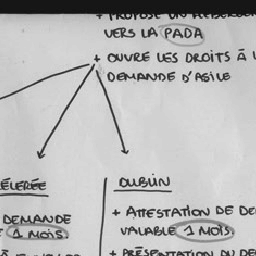 + PROPOSE UN
VERS LA PADA
+ OUVRE LES DROITS À L
DEMANDE D'ASILE
ÉLERÉE
DEMANDE
1 MOIS.
DUBLIN
+ ATTESTATION DE DE
VALABLE 1 MOIS.
+ PRÉSENTATION DU DE